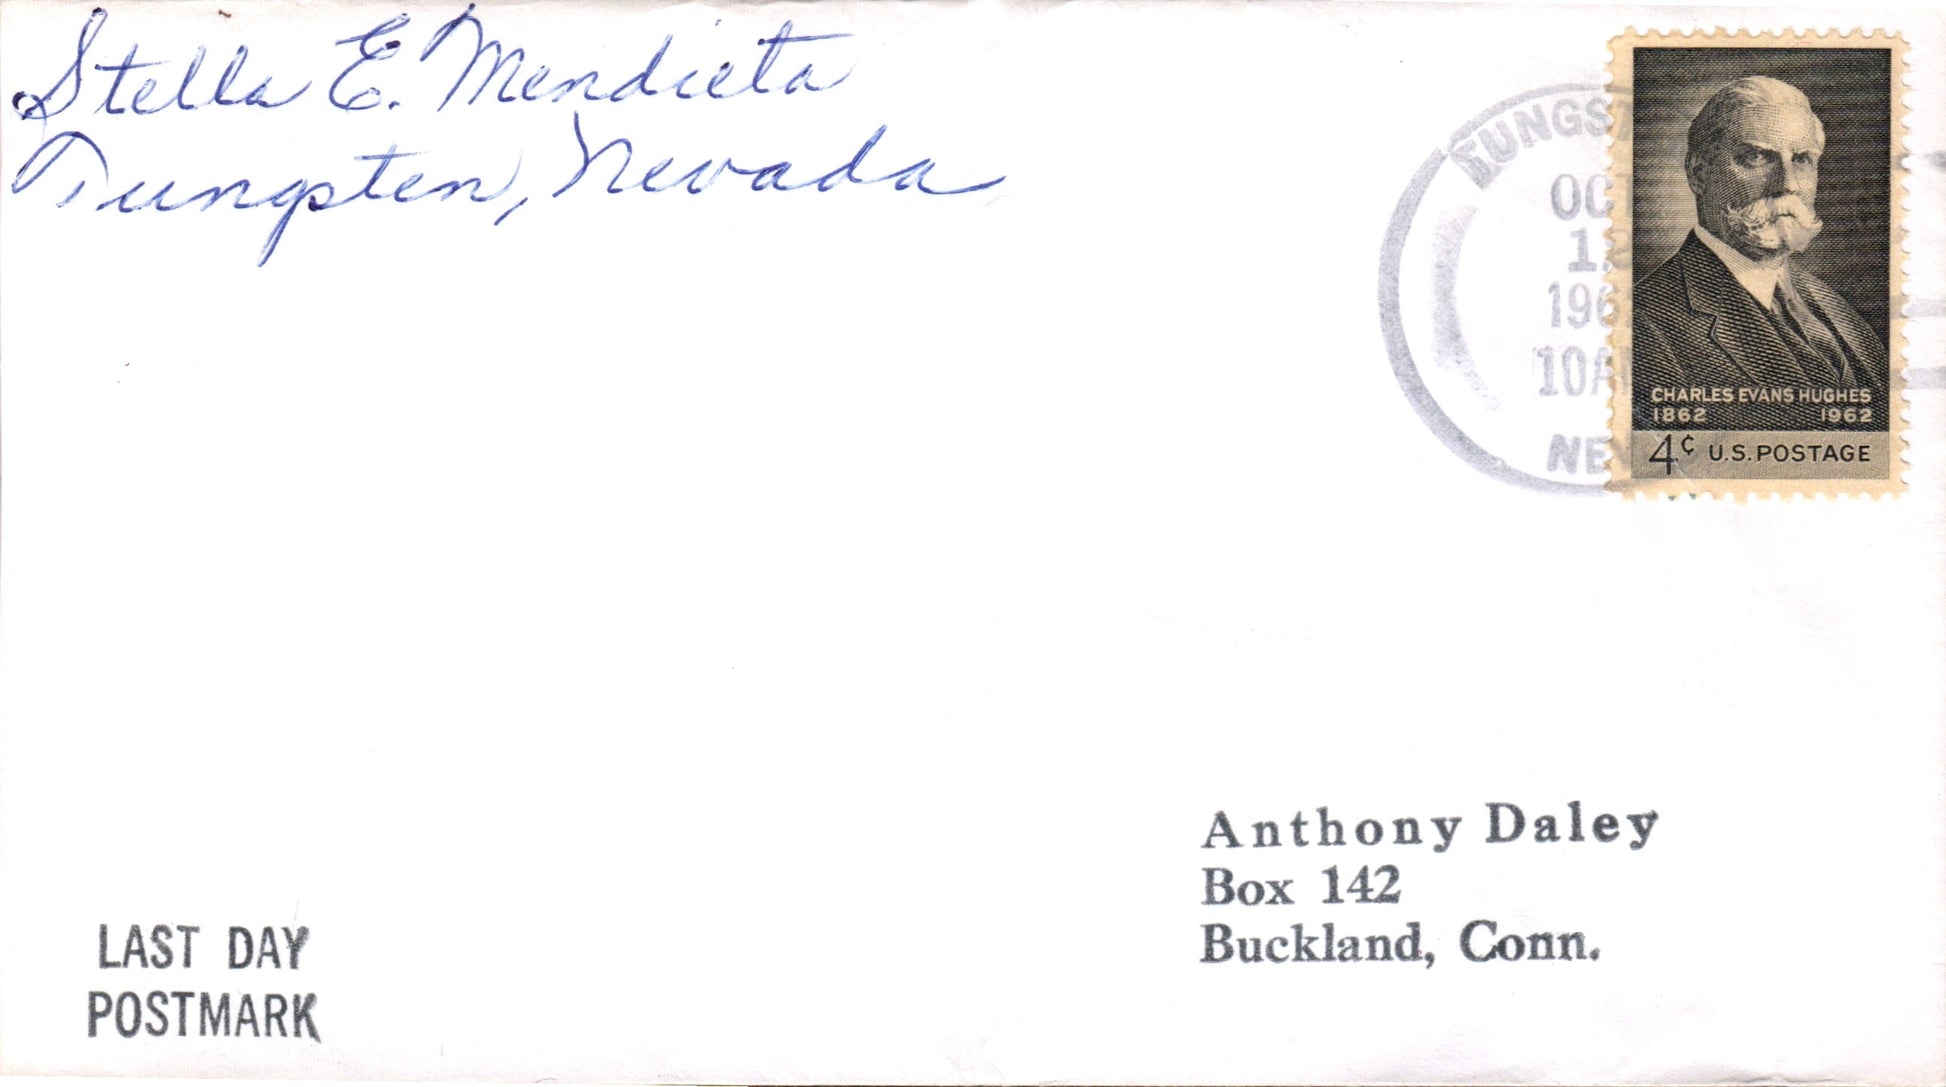 Stella E. Mendieta
Tungsten, Nevada
TUNGS
OC
12
196
10A
NEV
CHARLES EVANS HUGHES
1862 1962
4¢ U.S. POSTAGE
Anthony Daley
Box 142
Buckland, Conn.
LAST DAY
POSTMARK